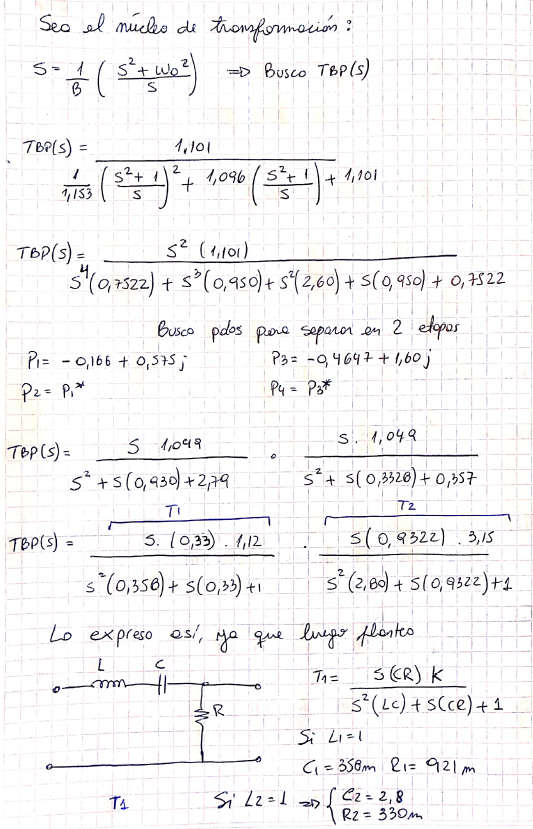 Sea el núcleo de transformación:
S = 1/B ( (S² + ωo²)/S ) ⇒ Busco TBP(s)
TBP(s) = 1,101 / ( 1/1,153 ( (S²+1)/S )² + 1,096 ( (S²+1)/S ) + 1,101 )
TBP(s) = S² (1,101) / ( S⁴(0,7522) + S³(0,950) + S²(2,60) + S(0,950) + 0,7522 )
Busco polos para separar en 2 etapas
P1 = -0,166 + 0,575j P3 = -0,4647 + 1,60j
P2 = P1* P4 = P3*
TBP(s) = S 1,049 / ( S² + S(0,930) + 2,79 ) · S. 1,049 / ( S² + S(0,3328) + 0,357 )
T1 T2
TBP(s) = S. (0,33) . 1,12 / ( S²(0,358) + S(0,33) + 1 ) · S(0,9322) . 3,15 / ( S²(2,80) + S(0,9322) + 1 )
Lo expreso así, ya que luego planteo
L C
R
T1 = S(CR) K / ( S²(LC) + S(CR) + 1 )
Si L1 = 1
C1 = 358m R1 = 921m
T1
Si L2 = 1 ⇒ { C2 = 2,8
R2 = 330m